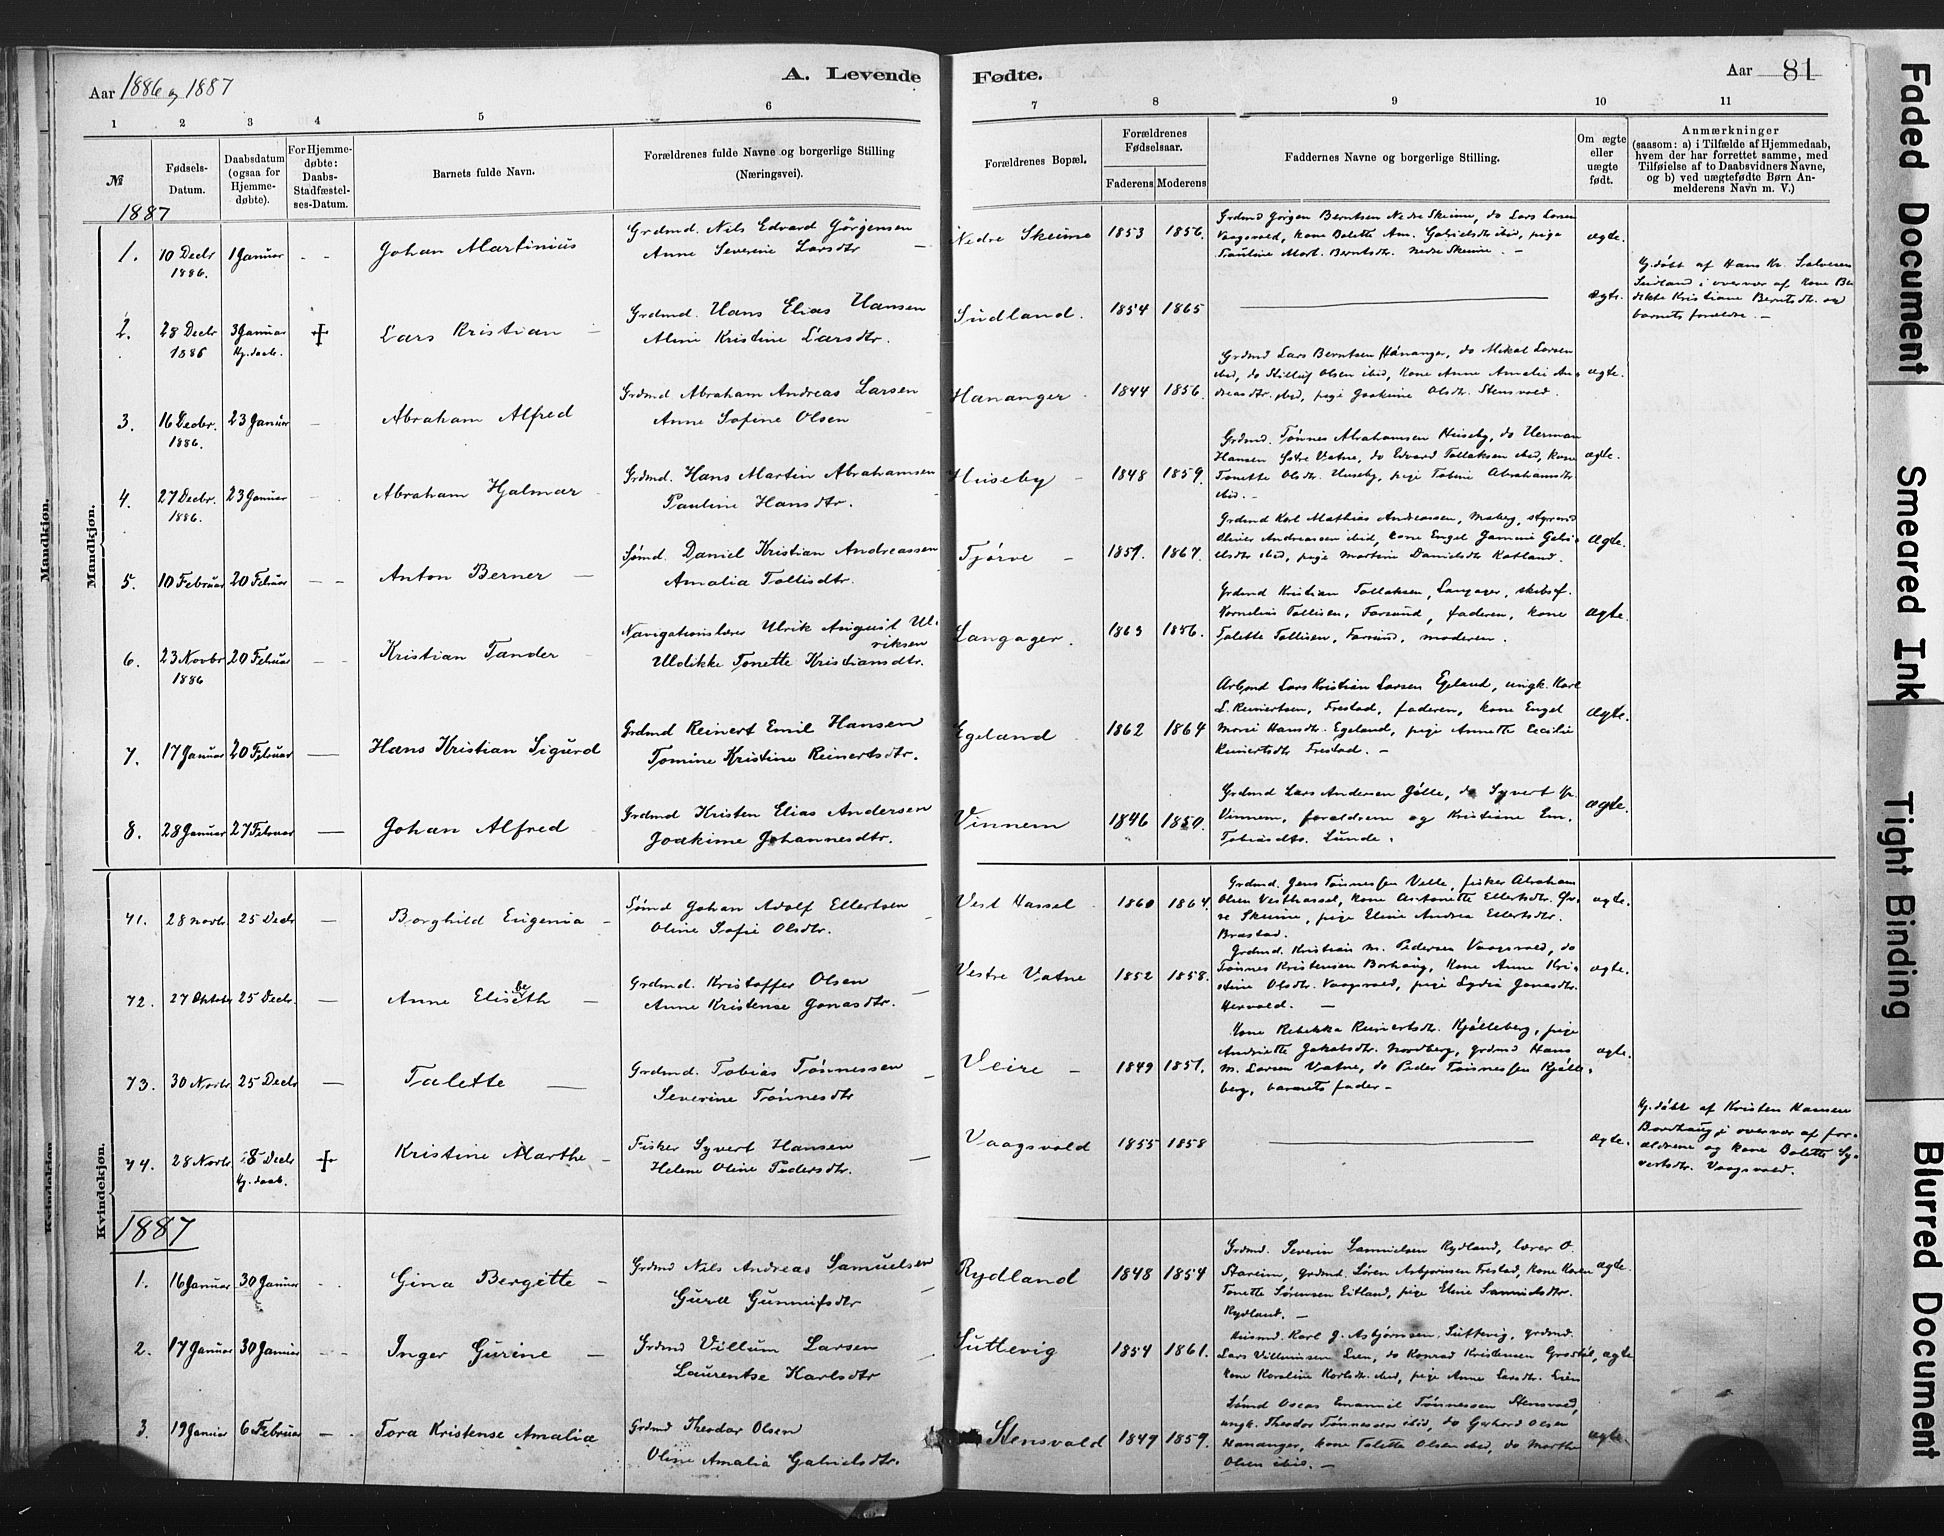 Aar 1886 og 1887
A. Levende Fødte.
Aar 81
1 2 3 4 5 6 7 8 9 10 11
№
Fødsels-Datum.
Daabsdatum (ogsaa for Hjemme-døbte).
For Hjemme-døbte: Daabs-Stadfæstel-ses-Datum.
Barnets fulde Navn.
Forældrenes fulde Navne og borgerlige Stilling (Næringsvei).
Forældrenes Bopæl.
Forældrenes Fødselsaar.
Faderens Moderens
Faddernes Navne og borgerlige Stilling.
Om ægte eller uægte født.
Anmærkninger (saasom: a) i Tilfælde af Hjemmedaab, hvem der har forrettet samme, med Tilføielse af to Daabsvidners Navne, og b) ved uægtefødte Børn An-melderens Navn m. V.)
Mandkjøn.
Mandkjøn.
1887
1. 10 Decbr 1886. 1 Januar - - Johan Martinius
Grdmd. Nils Edvard Jørgensen
Anne Severine Larsdtr
Nedre Skeime 1853 1856.
Grdmd Jørgen Berntsen Nedre Skeime, do Lars Larsen
Vaagsvold, kone Bolette Am. Gabrielsdtr ibid, pige
Pauline Mart. Berntsdtr. Nedre Skeime. -
ægte.
2. 28 Decbr 1886 3 Januar Hj. daab. + Lars Kristian -
Grdmd. Hans Elias Hansen
Aline Kristine Larsdtr.
Sudland. 1854 1865
ægte.
Hj. døbt af Hans Kr. Salvesen
Sudland i overvær af kone Be
dikte Kristiane Berntsdtr. og
barnets forældre. -
3. 16 Decbr. 1886. 23 Januar - Abraham Alfred
Grdmd Abraham Andreas Larsen
Anne Sofine Olsen
Hananger. 1844 1856.
Grdmd Lars Berntsen Hananger, do Mikal Larsen
ibid, do Stilluf Olsen ibid, kone Anne Amalie An-
dreasdtr. ibid, pige Joakime Olsdtr. Stensvold.
ægte.
4. 27 Decbr. 1886. 23 Januar - Abraham Hjalmar
Grdmd. Hans Martin Abrahamsen
Pauline Hansdtr.
Huseby - 1848 1859.
Grdmd. Tønnes Abrahamsen Huseby, do Herman
Hansen Østre Vatne, do Edvard Tollaksen ibid, kone
Tonette Olsdtr. Huseby, pige Tobine Abrahamsdtr
ibid. -
ægte.
5. 10 Februar 20 Februar - - Anton Berner -
Sømd. Daniel Kristian Andreassen
Amalia Tollisdtr.
Tjørve - 1857. 1867.
Grdmd Karl Mathias Andreassen, Maberg, styrmd
Olivier Andreassen ibid, kone Engel Jamine Gabri-
elsdtr ibid, pige Martine Danielsdtr Katland.
Ægte.
6. 23 Novbr 1886 20 Februar - - Kristian Tander -
Navigationslærer Ulrik August Ul-
riksen
Uldikke Tonette Kristiansdtr.
Langager. 1863 1856.
Grdmd Kristian Tollaksen, Langager, skibsf.
Kornelius Tollisen, Farsund, faderen, kone
Talette Tollisen, Farsund, moderen.
ægte.
7. 17 Januar 20 Februar - Hans Kristian Sigurd
Grdmd Reinert Emil Hansen
Tomine Kristine Reinertsdtr.
Egeland. 1862 1864
Arbmd Lars Kristian Larsen Egeland, ungk. Karl
L. Reinertsen, Frestad, faderen, kone Engel
Marie Hansdtr. Egeland, pige Annette Cecilie
Reinertsdtr Frestad. -
Ægte.
8. 28 Januar 27 Februar - Johan Alfred
Grdmd Kristen Elias Andersen
Joakime Johannesdtr.
Vinnem 1846 1850.
Grdmd Lars Andersen Gjølle, do Syvert
Vinnem, forældrene og Kristiane Em.
Tobiasdtr. Lunde.
ægte.
Kvindekjøn.
Kvindekjøn
71. 28 Novbr. 25 Decbr - Borghild Eugenia -
Sømd Johan Adolf Ellertsen
Oline Sofie Olsdtr.
Vest Hassel. 1860 1864.
Grdmd. Jens Tønnessen Velle, fisker Abraham
Olsen Vesthassel, kone Antonette Ellertsdtr. Øv-
re Skeime, pige Eline Andrea Ellertsdtr.
Brastad.
ægte.
72. 27 Oktobr 25 Decbr. - Anne Elisebeth -
Grdmd. Kristoffer Olsen
Anne Kristense Jonasdtr.
Vestre Vatne 1852 1858.
Grdmd. Kristian M. Pedersen Vaagsvold, do
Tønnes Kristensen Borhaug, kone Anne Kri-
stine Olsdtr. Vaagsvold, pige Lydia Jonasdtr.
Hervold. -
ægte.
73. 30 Novbr. 25 Decbr - Talette -
Grdmd. Tobias Tønnessen
Severine Tønnesdtr
Veire - 1849 1851.
Kone Rebekka Reinertsdtr. Kjølleberg, pige
Andriette Jakobsdtr. Nordberg, grdmd Hans
M. Larsen Vatne, do Peder Tønnessen Kjølle-
berg, barnets fader -
ægte.
74. 28 Novbr. 8 Decbr Hj. daab. + Kristine Marthe -
Fisker Syvert Hansen
Helene Oline Pedersdtr.
Vaagsvold 1855 1858
ægte.
Hj. døbt af Kristen Hansen
Bordhaug i overvær af for-
ældrene og kone Bolette Sy-
vertsdtr. Vaagsvold.
1887
1. 16 Januar 30 Januar - - Gina Bergitte -
Grdmd Nils Andreas Samuelsen
Guro Gunnufsdtr
Rydland 1848 1854
Grdmd. Severin Samuelsen Rydland, lærer O.
Stareim, grdmd. Søren Asbjørnsen Frestad, kone Karen
Tonette Sørensen Eitland, pige Eline Samuelsdtr.
Rydland. -
ægte.
2. 17 Januar 30 Januar - - Inger Gurine -
Grdmd Villum Larsen
Laurentse Karlsdtr
Luttevig 1854 1861.
Husmd. Karl J. Asbjørnsen, Luttevig, grdmd.
Lars Villumsen Lien, do Konrad Kristensen
kone Karoline Karlsdtr. ibid, pige Anne Larsdtr.
ægte
3. 19 Januar 6 Februar - - Tora Kristense Amalia
Grdmd Theodor Olsen
Oline Amalia Gabrielsdtr.
Stensvold 1847 1859.
Sømd Oscar Emanuel Tønnessen Stensvold,
ungk. Theodor Tønnessen ibid, do Gerhard Olsen
Hananger, kone Talette Olsen ibid, do Marthe
Olsen ibid. -
ægte.
Faded Document
Smeared Ink
Tight Binding
Blurred Document